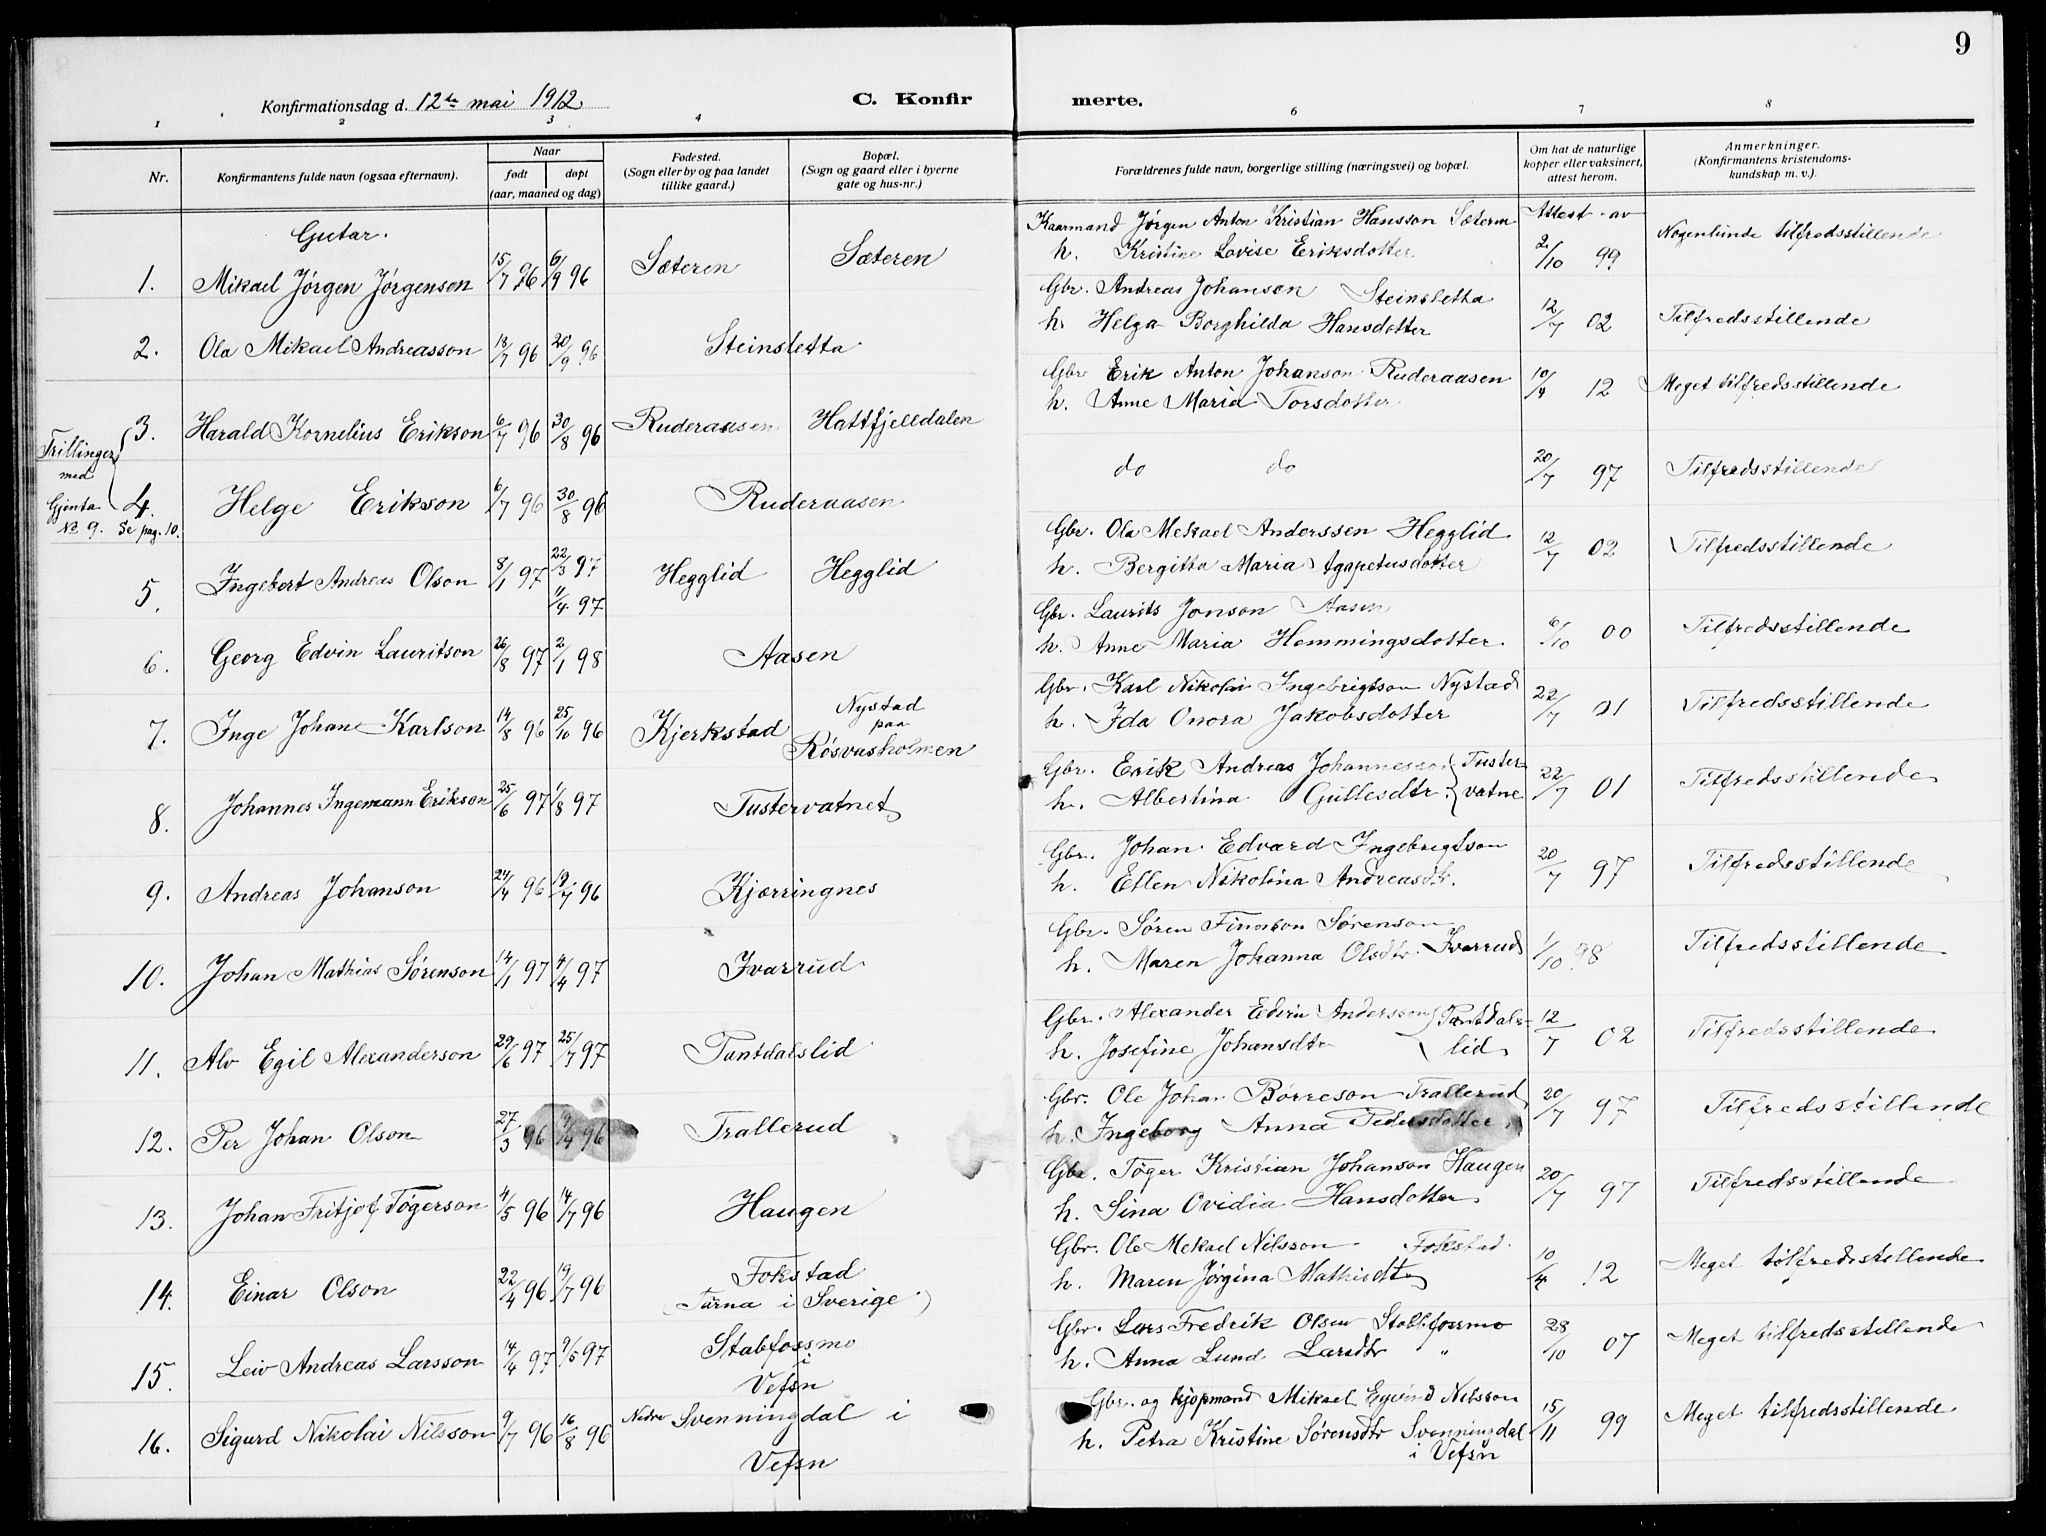 9
Konfirmationsdag d. 12te mai 1912.
C. Konfirmerte.
1 2 3 4 6 7 8
Nr.
Konfirmantens fulde navn (ogsaa efternavn).
Naar
født døpt
(aar, maaned og dag)
Fødested.
(Sogn eller by og paa landet
tillike gaard.)
Bopæl.
(Sogn og gaard eller i byerne
gate og hus-nr.)
Forældrenes fulde navn, borgerlige stilling (næringsvei) og bopæl.
Om hat de naturlige
kopper eller vaksinert,
attest herom.
Anmerkninger.
(Konfirmantens kristendoms-
kundskap m. v.).
Gutar.
1. Mikael Jørgen Jørgenson 15/7 96 6/9 96 Sæteren Sæteren
Kaarmand Jørgen Anton Kristian Hansson Sæteren
h. Kristine Lovise Eriksdotter
Attest av
2/10 99 Nogenlunde tilfredsstillende
2. Ola Mikael Andreasson 13/7 96 20/9 96 Steinsletta
Gbr. Andreas Johanson Steinsletta
h. Helga Borghilda Hansdotter
12/7 02 Tilfredsstillende
3. Harald Kornelius Erikson 6/7 96 30/8 96 Ruderaasen Hattfjelldalen
Gbr Erik Anton Johanson Ruderaasen
h. Anne Maria Torsdotter
10/4 12 Meget tilfredsstillende
Trillinger
med
Gjenta
No 9. Se pag. 10.
4. Helge Erikson 6/7 96 30/8 96 Ruderaasen
do do
20/7 97 Tilfredsstillende
5. Ingebert Andreas Olson 8/1 97 22/3 97
11/4 97
Hegglid Hegglid
Gbr. Ola Mekael Anderssen Hegglid
h. Bergitta Maria Agapetusdotter
12/7 02 Tilfredsstillende
6. Georg Edvin Lauritson 26/8 97 2/1 98 Aasen
Gbr. Laurits Jonson Aasen
h. Anne Maria Hemmingsdotter
6/10 00 Tilfredsstillende
7. Inge Johan Karlson 14/8 96 25/10 96 Kjerkstad
Nystad
paa
Røsvasholmen
Gbr. Karl Nikolai Ingebrigtson Nystad
h. Ida Onora Jakobsdotter
22/7 01 Tilfredsstillende
8. Johannes Ingemann Erikson 25/6 97 1/8 97 Tustervatnet
Gbr. Erik Andreas Johannesson Tuster-
h. Albertina Gullesdtr. vatne
22/7 01 Tilfredsstillende
9. Andreas Johanson 24/4 96 19/7 96 Kjærringnes
Gbr. Johan Edvard Ingebrigtson
h. Ellen Nikolina Andreasdtr.
20/7 97 Tilfredsstillende
10. Johan Mathias Sørenson 14/1 97 4/4 97 Ivarrud
Gbr. Søren Sørenson
h. Maren Johanna Olsdtr. Ivarrud
1/10 98 Tilfredsstillende
11. Alv Egil Alexanderson 29/6 97 25/7 97 Tantdalslid
Gbr. Alexander Edvin Andersson Tantdals-
h. Josefine Johansdtr lid
12/7 02 Tilfredsstillende
12. Per Johan Olson 27/3 96 19/4 96 Trallerud
Gbr. Ole Johan Børreson Trallerud
h. Ingeborg Anna Pedersdotter
20/7 97 Tilfredsstillende
13. Johan Fritjof Tøgerson 4/5 96 14/7 96 Haugen
Gbr. Tøger Kristian Johanson Haugen
h. Sina Ovidia Hansdotter
20/7 97 Tilfredsstillende
14. Einar Olson 22/4 96 19/7 96 Fokstad
(Tärna i Sverige)
Gbr. Ole Mekael Nilsson Fokstad.
h. Maren Jørgina Mathisdtr
10/4 12 Meget tilfredsstillende
15. Leiv Andreas Larsson 14/4 97 9/5 97 Stabfossmo
i
Vefsn
Gbr. Lars Fredrik Olsen Stabfossmo
h. Anna Lund Larsdtr "
28/10 07 Meget tilfredsstillende
16. Sigurd Nikolai Nilsson 9/7 96 16/8 96 Nedre Svenningdal i
Vefsn
Gbr. og kjøpmand Mikael Eyvind Nilsson
h. Petra Kristine Sørensdtr Svenningdal
i Vefsn
15/11 99 Meget tilfredsstillende